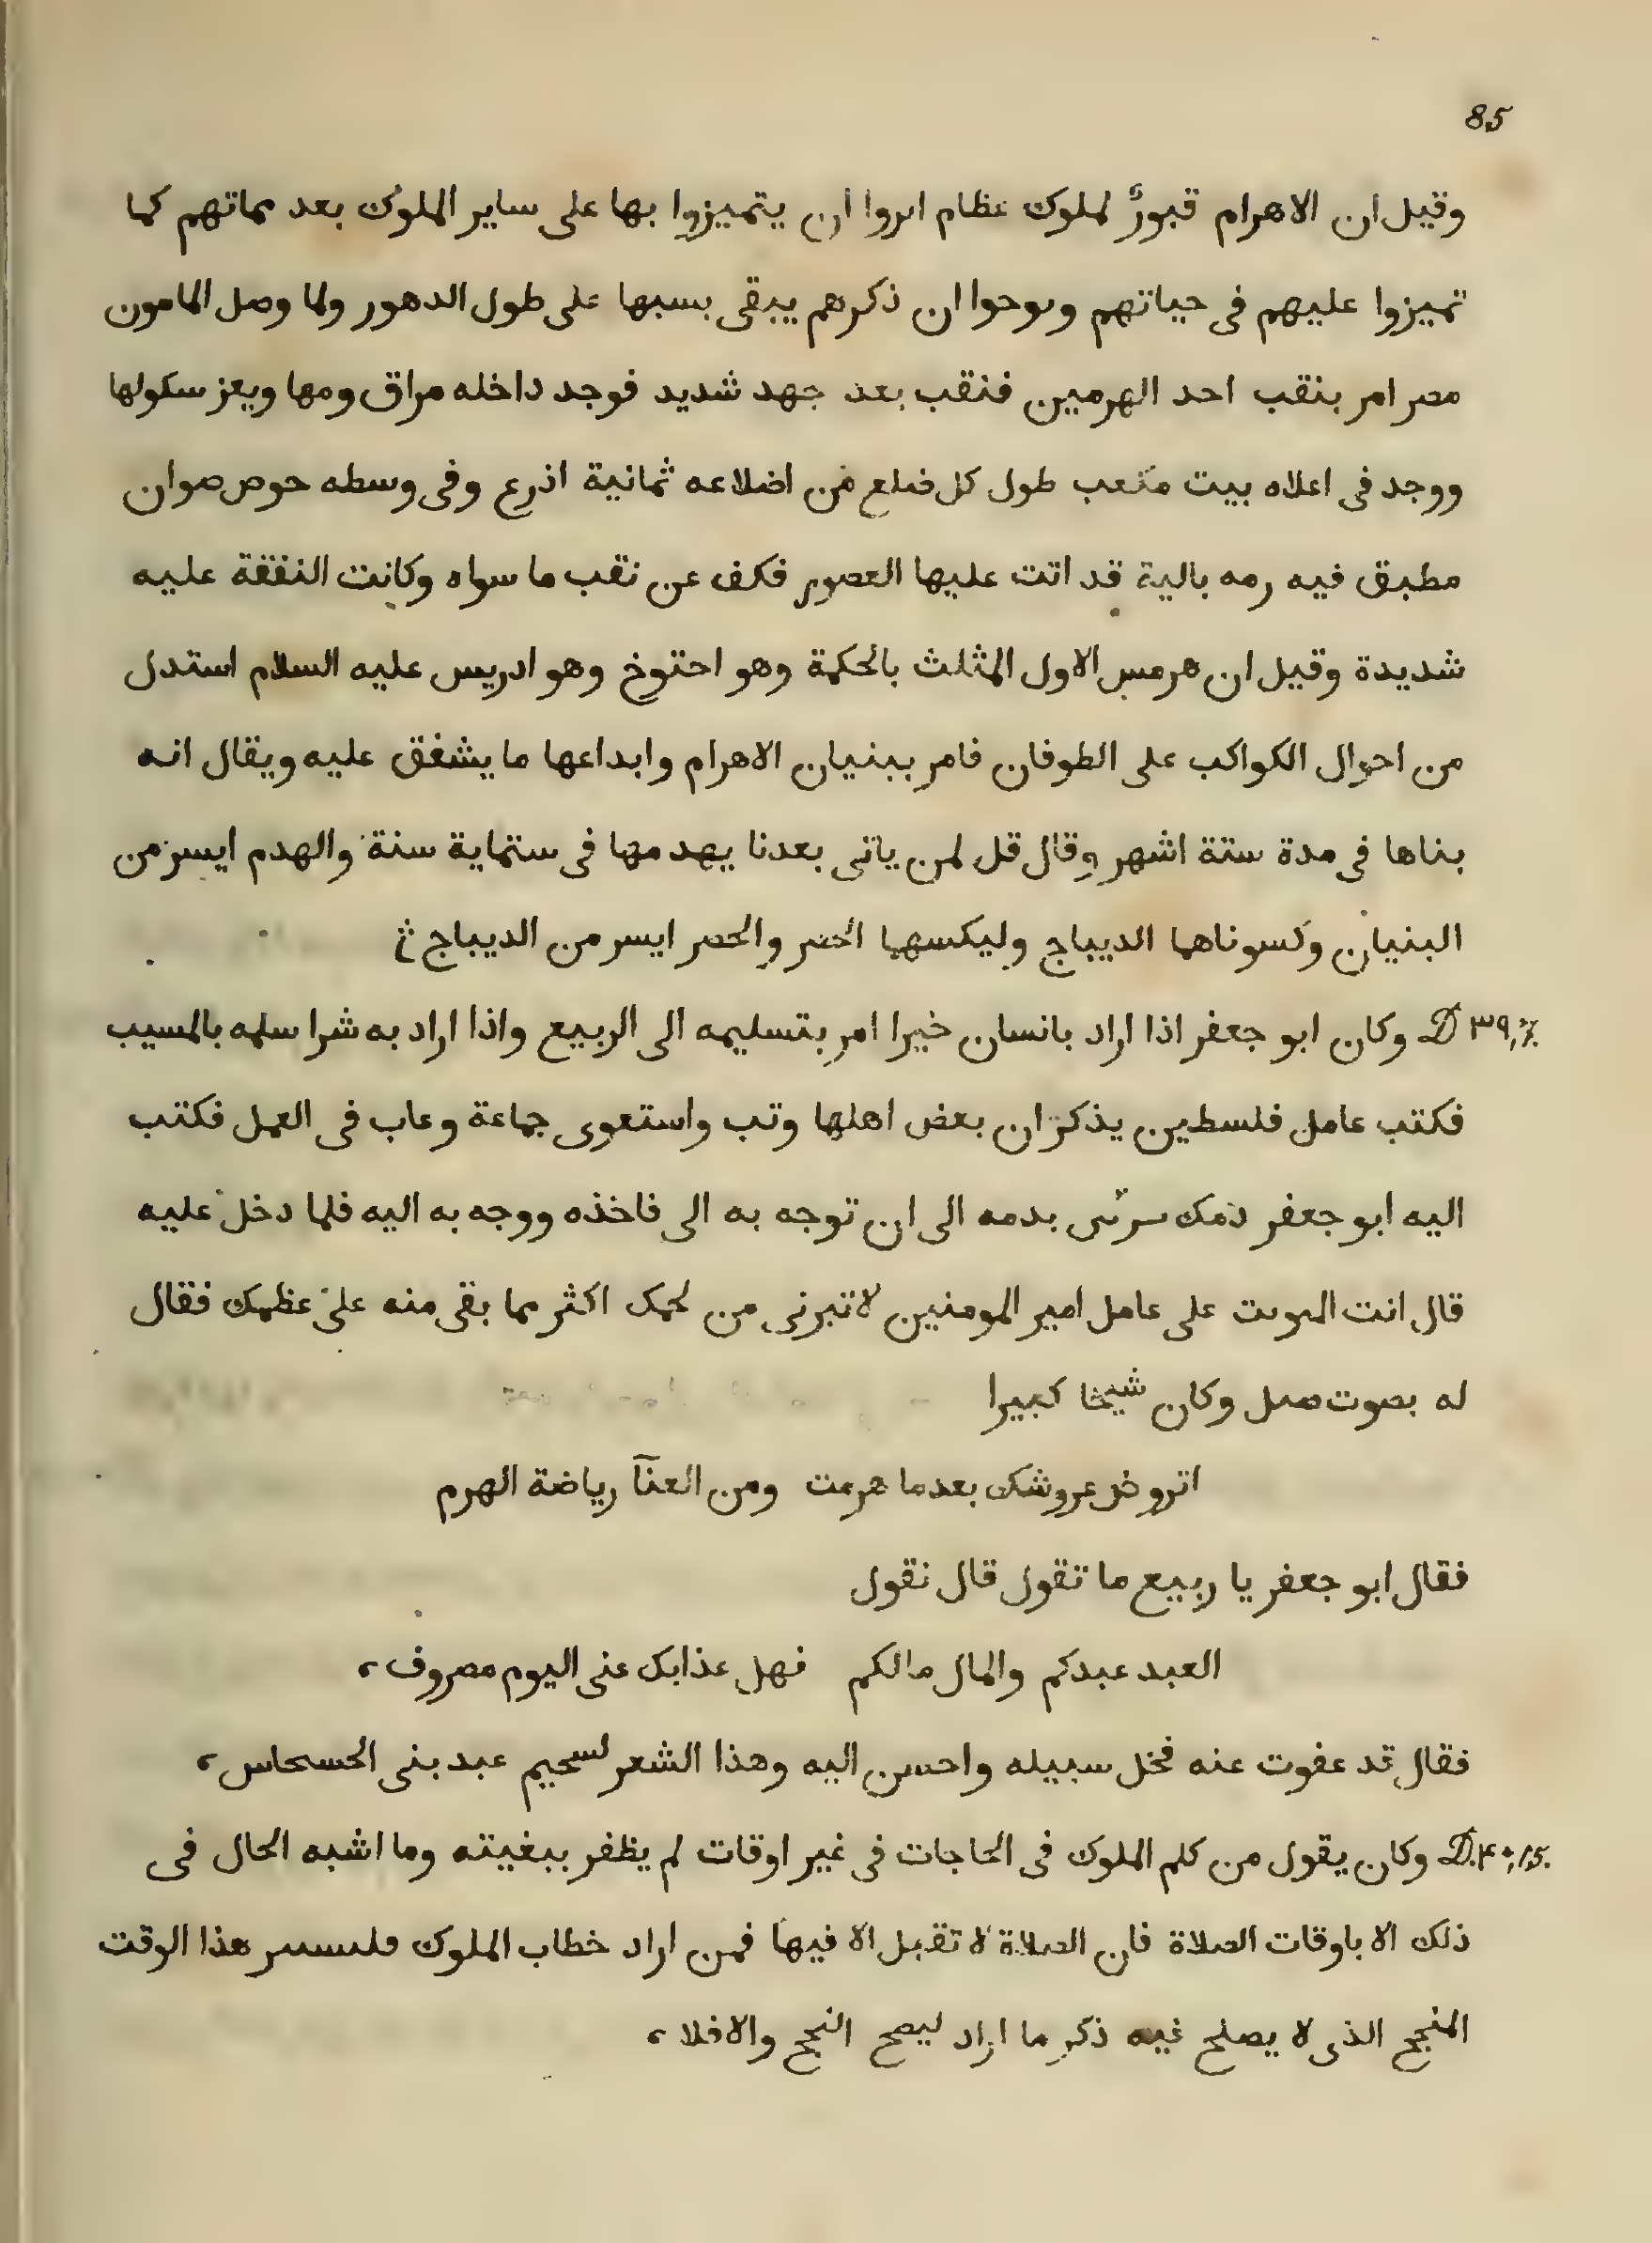 85
وقيل ان الاهرام قبورٌ لملوك عظام اىروا ان يتميزوا بها على ساير الملوك بعد مماتهم كما
تميزوا عليهم فى حياتهم وىوحوا ان ذكرهم يبقى بسببها على طول الدهور ولما وصل المامون
مصر امر بنقب احد الهرمين فنقب بعد جهد شديد فوجد داخله مراق ومها ويعز سكولها
ووجد فى اعلاه بيت متعب طول كل ضلع من اضلاعه ثمانية اذرع وفى وسطه حوص صوان
مطبق فيه رمه بالية قد اتت عليها العصور فكف عن نقب ما سواه وكانت النفقة عليه
شديدة وقيل ان هرمس الاول المثلث بالحكمة وهو احتوخ وهو ادريس عليه السلام استدل
من احوال الكواكب على الطوفان فامر ببنيان الاهرام وابداعها ما يشفق عليه ويقال انه
بناها فى مدة ستة اشهر وقال قل لمن ياتى بعدنا يهدمها فى ستماية سنة والهدم ايسر من
البنيان وكسوناهما الديباج وليكسهما الحصر والحصر ايسر من الديباج
D ٣٩,٧. وكان ابو جعفر اذا اراد بانسان خيرا امر بتسليمه الى الربيع واذا اراد به شرا سلمه بالمسيب
فكتب عامل فلسطين يذكر ان بعض اهلها وتب واستعوى جماعة وعاب فى العمل فكتب
اليه ابو جعفر دمك بدمه الى ان توجه به الى فاخذه ووجه به اليه فلما دخل عليه
قال انت المىوىت على عامل امير المومنين لاتبرنى من لحمك اكثر مما بقى منه على عظمك فقال
له بصوت صىل وكان شيخا كبيرا
اتروض عروشك بعدما هرمت ومن العنآ رياضة الهرم
فقال ابو جعفر يا ربيع ما تقول قال نقول
العبد عبدكم والمال مالكم فهل عذابك عنى اليوم مصروف،
فقال قد عفوت عنه فخل سبيله واحسن اليه وهذا الشعر لسحيم عبد بنى الحسحاس،
D.٤٠,15. وكان يقول من كلم الملوك فى الحاجات فى غير اوقات لم يظفر ببغيته وما اشبه الحال فى
ذلك الا باوقات الصلاة فان الصلاة لا تقبل الا فيها فمن اراد خطاب الملوك هذا الوقت
المنجح الذى لا يصلح فيه ذكر ما اراد ليصح النجح والا فلا،